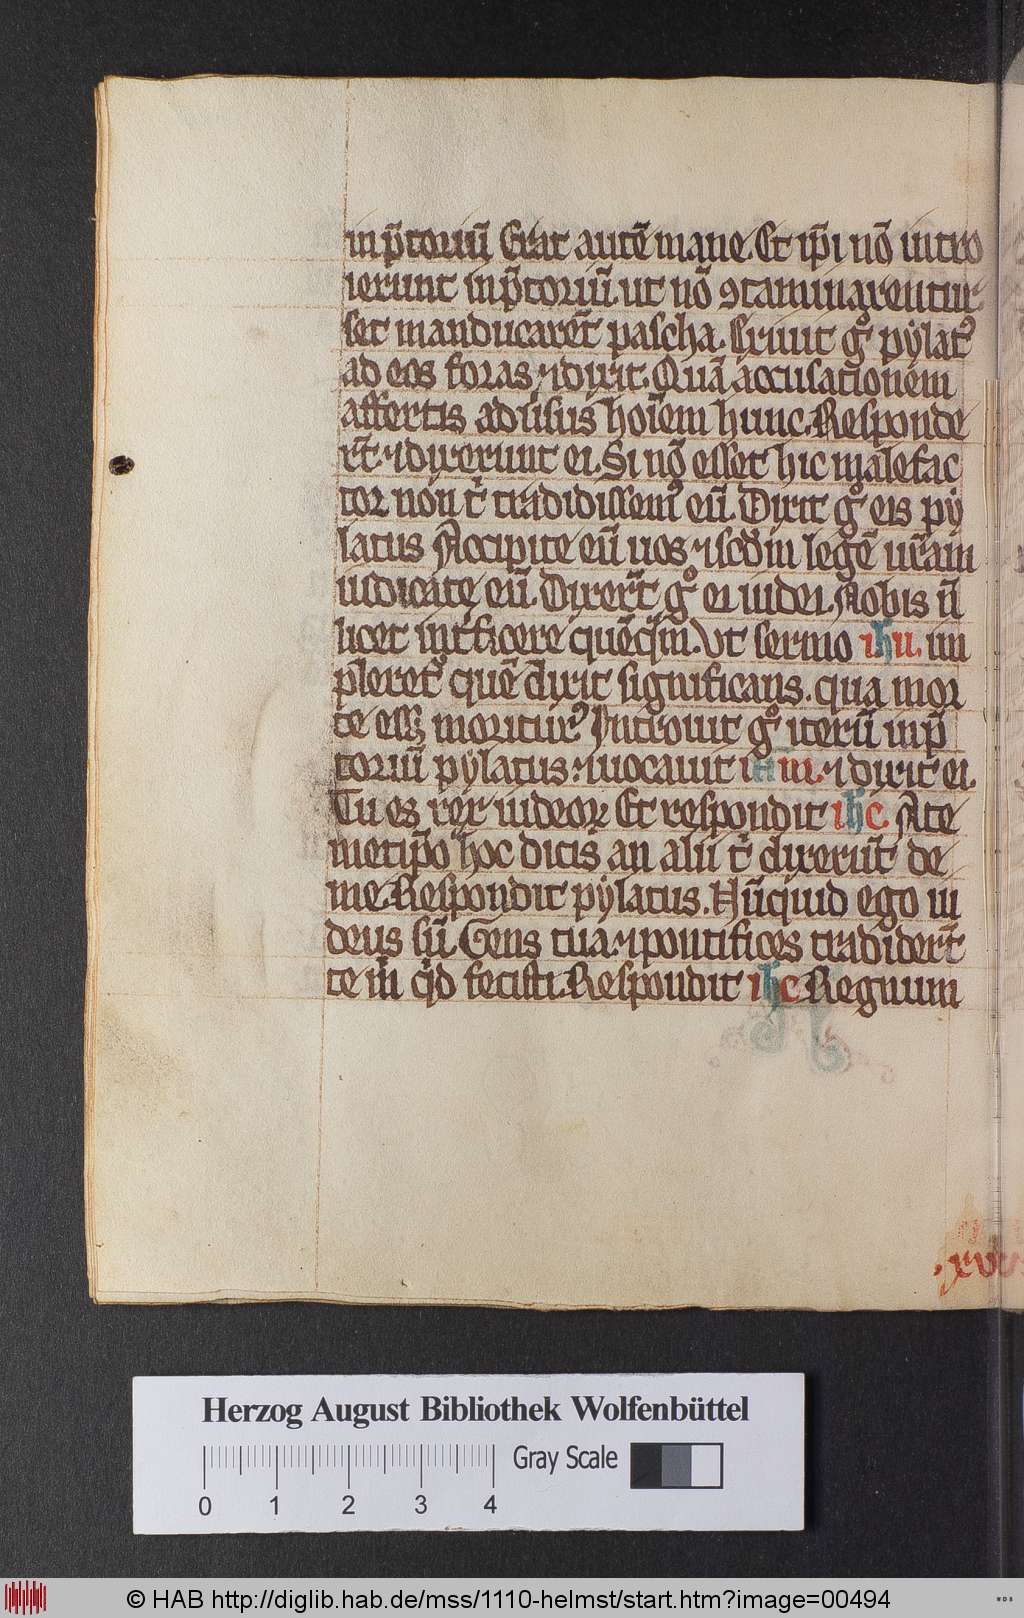 in p̄toriū Erat autē mane. Et ip̄i nō intro
ierunt in p̄toriū. ut nō ꝯtaminarentur.
set manducarēt pascha. Exiuit gͦ pylatꝰ
ad eos foras ⁊ dixit. Quā accusationem
affertis aduersus hoīem hunc. Responde
rt̄. ⁊ dixerunt ei. Si nō esset hic malefac
tor non t̄ tradidissemꝰ eū. Dixit gͦ eis py
latus Accipite eū uos ⁊ scdm̄ legē ur̄am
iudicate eū. Dixert̄ gͦ ei iudei. Nobis n̄
licet int̄ficere quēqm̄. Vt sermo ihu. im
pleretꝰ quē dixit significans. qua mor
te esꝫ moriturꝰ Introiuit gͦ iterū in p̄
toriū pylatus. ⁊ uocauit ihm. ⁊ dixit ei.
Tu es rex iudeoꝝ Et respondit ihc. A te
metip̄o hoc dicis an alii t̄ dixerūt de
me. Respondit pylatus. Nūquid ego iu
deus sū. Gens tua. ⁊ pontifices tradidert̄
te m̄ qd fecisti. Respondit ihc Regnum
Herzog August Bibliothek Wolfenbüttel
Gray Scale
0 1 2 3 4
© HAB http://diglib.hab.de/mss/1110-helmst/start.htm?image=00494